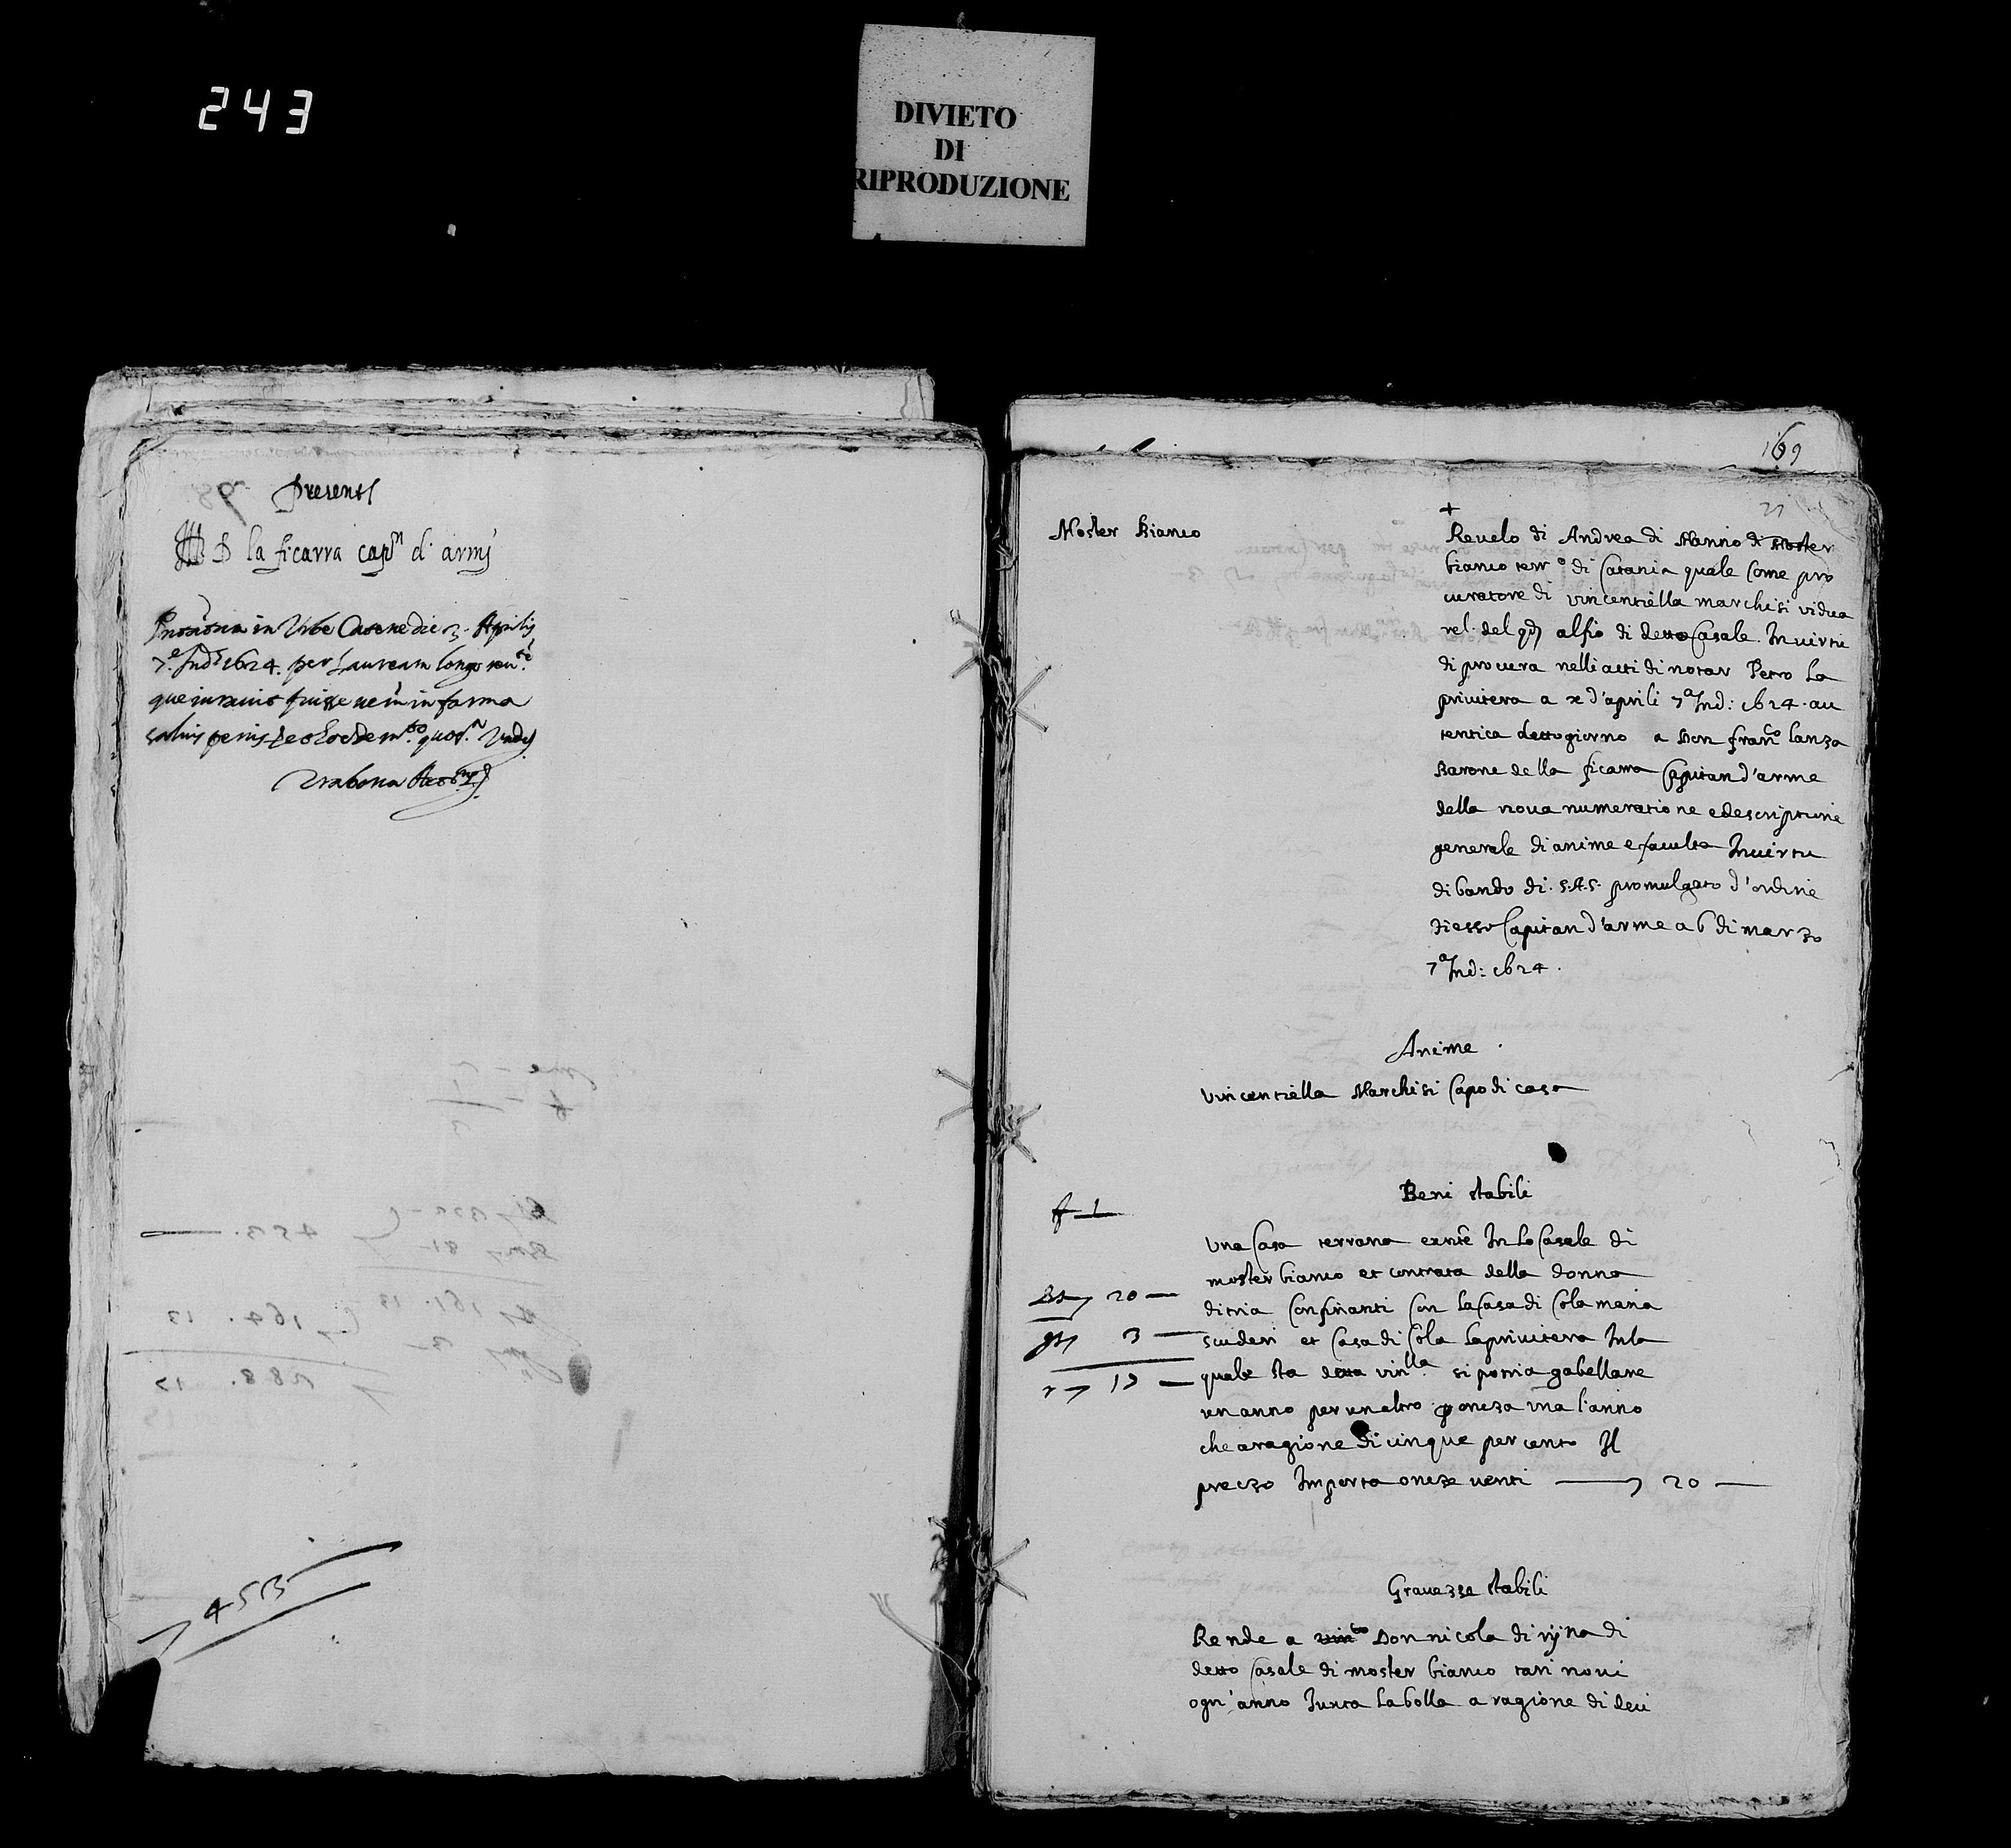 243
DIVIETO
DI
RIPRODUZIONE
Presents
D la ficarra capn d' armj
in Urbe die 3. Aprilis
7.e Indis 1624. per Lauream longo
que iuravit fuisse in forma
4513
169
21
Moster Bianco
+
Revelo di Andrea di Manno di Moster
bianco terro di Catania quale Come pro
curatore di vincentiella marchesi vidua
rel. del qd alfio di detto Casale. In virtu
di procura nelli atti di notar Petro La
privitera a x d'aprili 7a Ind: 1624. au
tentica detto giorno a Don franco lanza
Barone della ficarra Capitan d'arme
della nova numeratione e descriptione
generale di anime e faculta In virtu
di bando di. S.A.S. promulgato d'ordine
di esso Capitan d'arme a 6 di marzo
7a Ind: 1624.
Anime.
Vincentiella Marchisi Capo di casa
Beni stabili
f 1
una Casa terrana exnte In lo Casale di
moster bianco et contrata della donna
20 —
ditria Confinanti Con la Casa di Cola maria
3 —
scuderi et Casa di Cola la privitera In la
17 —
quale sta detta vinlla. si potria gabellare
un anno per un altro p onza una l'anno
che a ragione di cinque per cento Il
prezzo Importa onze venti — 20 —
Gravezze stabili
Rende a Don nicola di di
detto Casale di moster bianco tari novi
ogn'anno Iuxta la bolla a ragione di deci